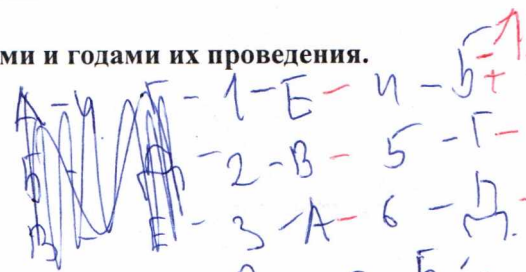 ми и годами их проведения.
1-Е- 4-Б+ 1
2-В- 5-Г-
3-А- 6-Д-